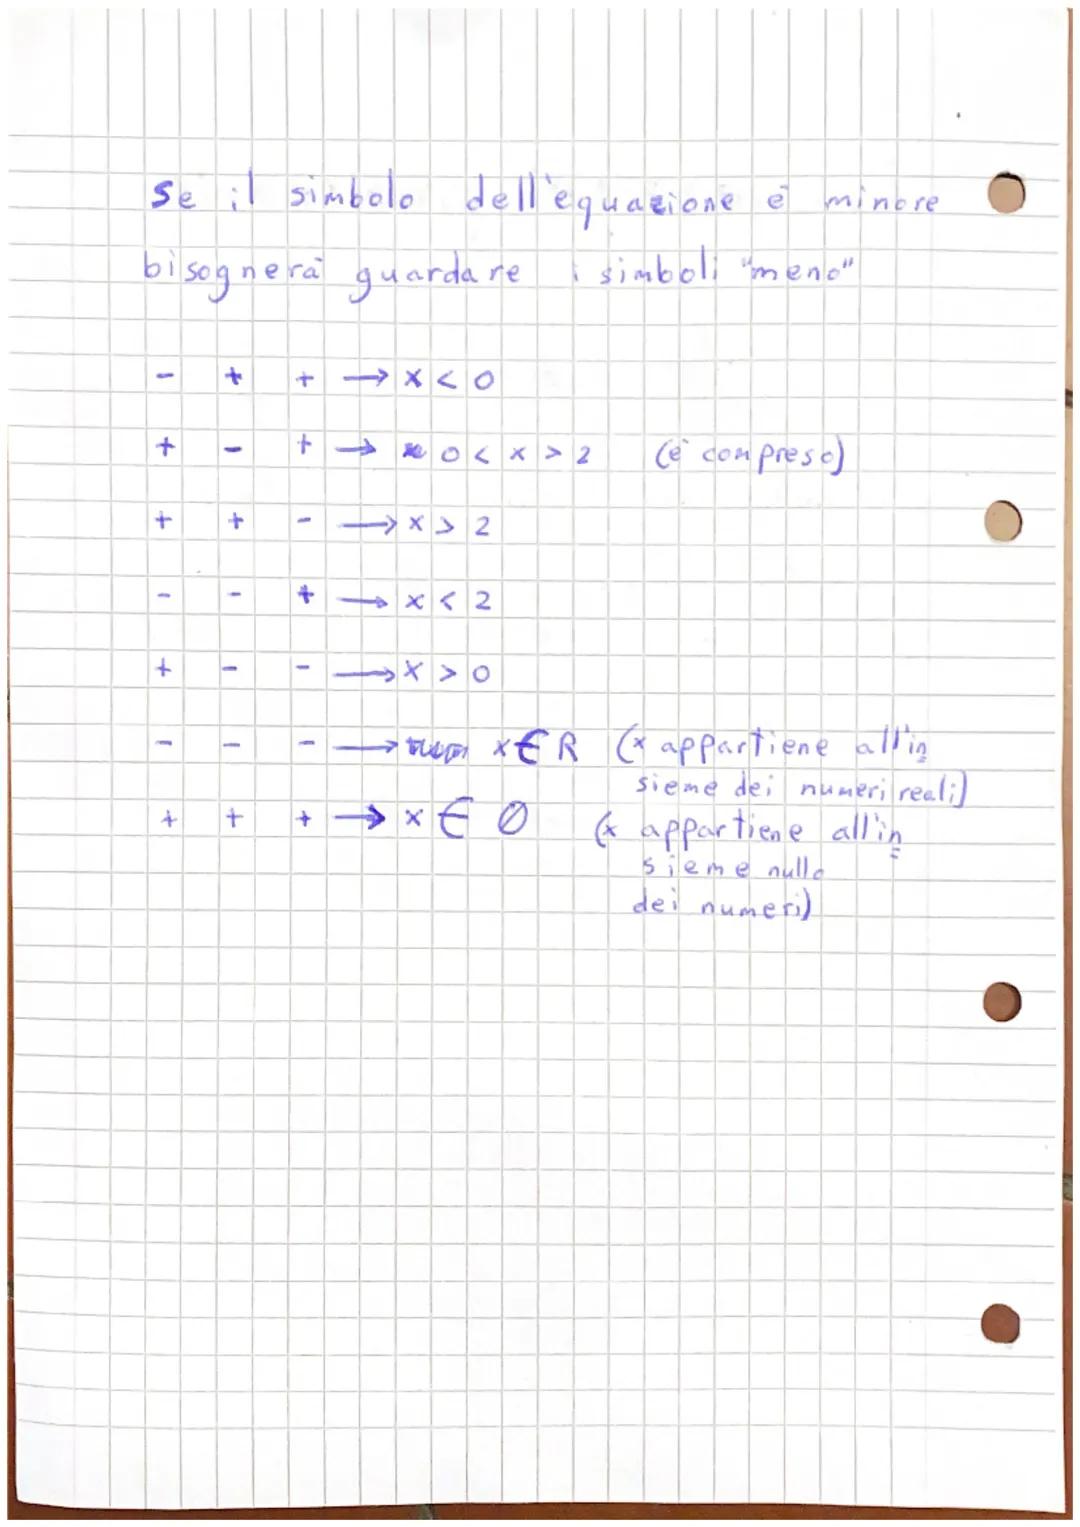 Se il simbolo dell'equazione è minore
bisognerà guardare i simboli "meno"
- + + → x < 0
+ - + → 0 < x > 2 (è compreso)
+ + - → x > 2
- - + → x < 2
+ - - → x > 0
- - - → x ∈ R (x appartiene all'in
sieme dei numeri reali)
+ + + → x ∈ ∅ (x appartiene all'in
sieme nullo
dei numeri)